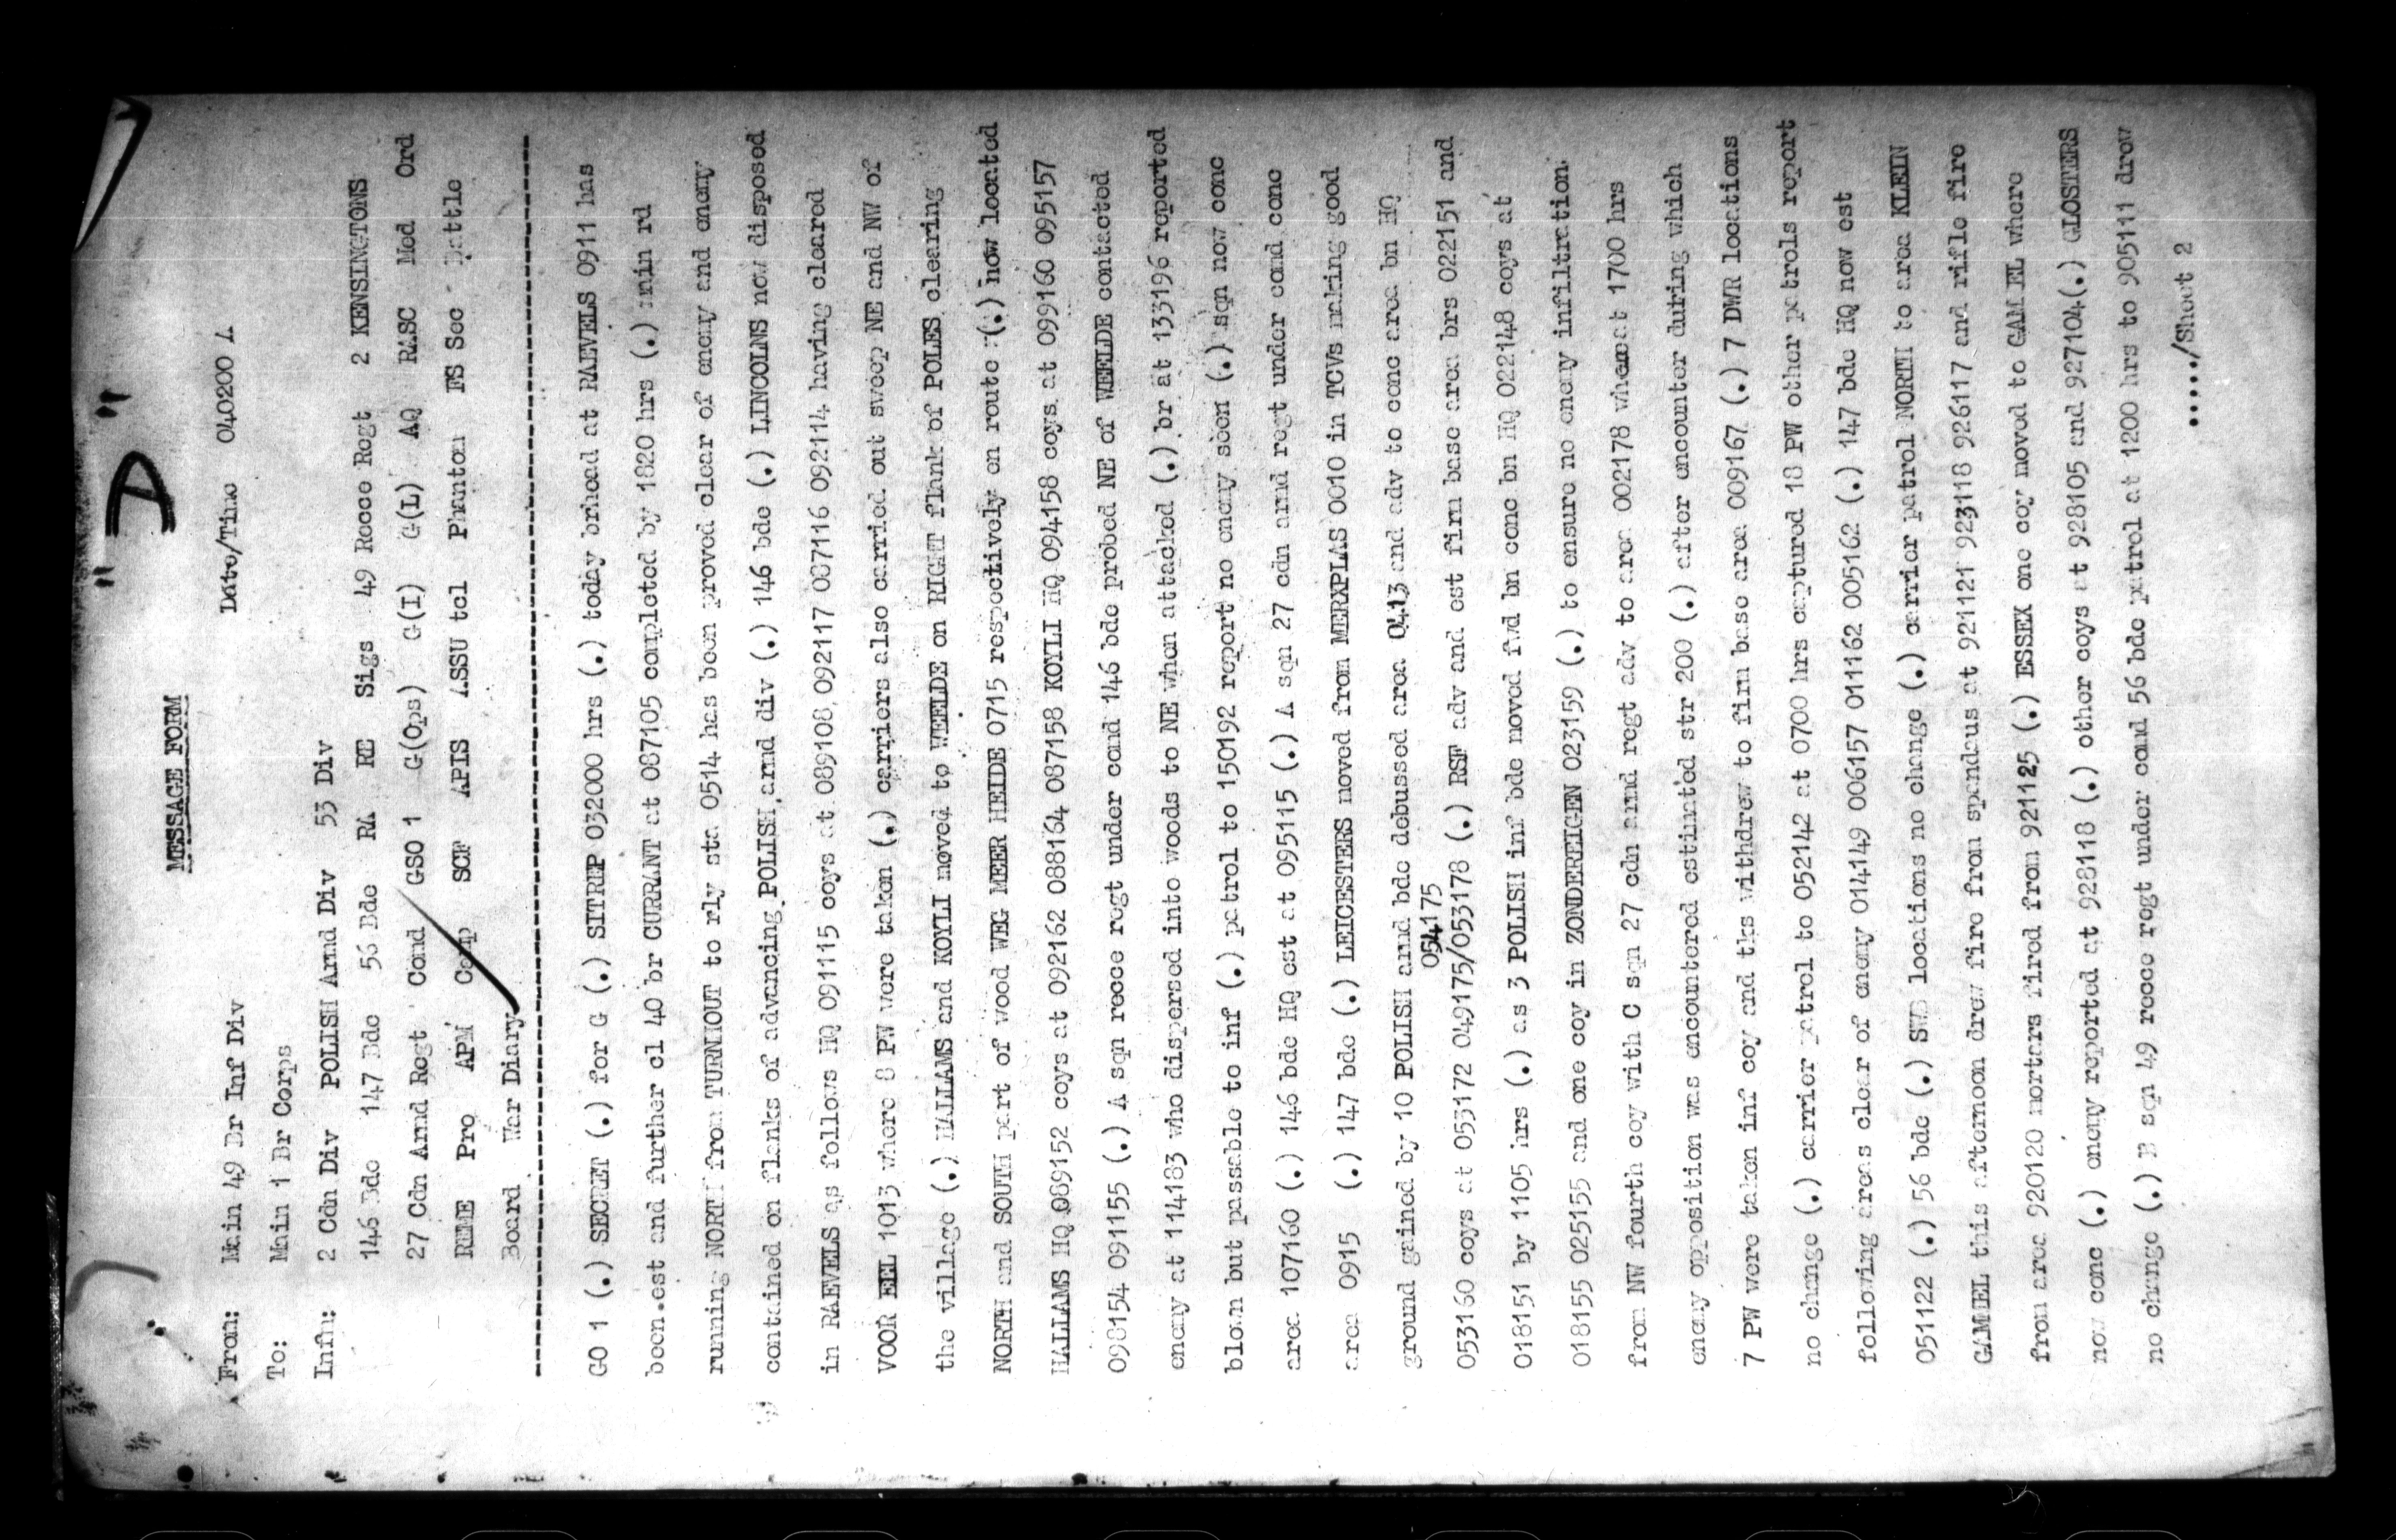 "D"
MESSAGE FORM
From: Main 49 Br Inf Div Date/Time 040200 A
To: Main 1 Br Corps
Infm: 2 Cdn Div POLISH Armd Div 53 Div
146 Bde 147 Bde 56 Bde RA RE Sigs 49 Recce Regt 2 KENSINGTONS
27 Cdn Armd Regt Comd GSO 1 G(Ops) G(I) G(L) AQ RASC Med Ord
REME Pro APM Camp SCF APIS ASSU tcl Phantom FS Sec Battle
Board War Diary
GO 1 (.) SECRET (.) for G (.) SITREP 032000 hrs (.) today brhead at RAEVELS 0911 has
been est and further cl 40 br CURRANT at 087105 completed by 1820 hrs (.) main rd
running NORTH from TURNHOUT to rly sta 0514 has been proved clear of enemy and enemy
contained on flanks of advancing POLISH armd div (.) 146 bde (.) LINCOLNS now disposed
in RAEVELS as follows HQ 091115 coys at 089108 092117 087116 092114 having cleared
VOOR EEL 1013 where 8 PW were taken (.) carriers also carried out sweep NE and NW of
the village (.) HALLAMS and KOYLI moved to WEELDE on RIGHT flank of POLES clearing
NORTH and SOUTH part of wood WEG MEER HEIDE 0715 respectively en route (.) now located
HALLAMS HQ 089152 coys at 092162 088164 087158 KOYLI HQ 094158 coys at 099160 095157
098154 091155 (.) A sqn recce regt under comd 146 bde probed NE of WEELDE contacted
enemy at 114183 who dispersed into woods to NE when attacked (.) br at 133196 reported
blown but passable to inf (.) patrol to 150192 report no enemy seen (.) sqn now conc
area 107160 (.) 146 bde HQ est at 095115 (.) A sqn 27 cdn armd regt under comd conc
area 0915 (.) 147 bde (.) LEICESTERS moved from MERXPLAS 0010 in TCVs making good
ground gained by 10 POLISH armd bde debussed area 0413 and adv to conc area bn HQ
054175
053160 coys at 053172 049175/053178 (.) RSF adv and est firm base area brs 022151 and
018151 by 1105 hrs (.) as 3 POLISH inf bde moved fwd bn conc bn HQ 022148 coys at
018155 025155 and one coy in ZONDEREIGEN 023159 (.) to ensure no enemy infiltration
from NW fourth coy with C sqn 27 cdn armd regt adv to area 002178 where at 1700 hrs
enemy opposition was encountered estimated str 200 (.) after encounter during which
7 PW were taken inf coy and tks withdrew to firm base area 009167 (.) 7 DWR locations
no change (.) carrier patrol to 052142 at 0700 hrs captured 18 PW other patrols report
following areas clear of enemy 014149 006157 011162 005162 (.) 147 bde HQ now est
051122 (.) 56 bde (.) SWB locations no change (.) carrier patrol NORTH to area KLEIN
GAMMEL this afternoon drew fire from spandaus at 921121 923118 926117 and rifle fire
from area 920120 mortars fired from 921125 (.) ESSEX one coy moved to GAMMEL where
now conc (.) enemy reported at 928118 (.) other coys at 928105 and 927104(.) GLOSTERS
no change (.) B sqn 49 recce regt under comd 56 bde patrol at 1200 hrs to 905111 drew
...../Sheet 2